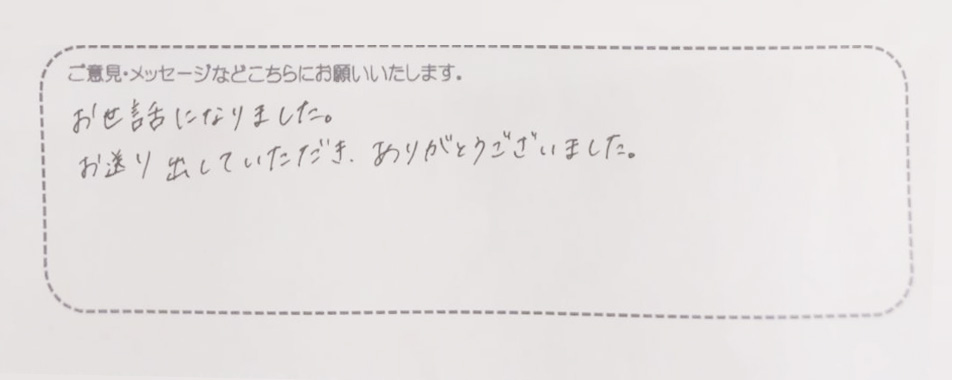 ご意見・メッセージなどこちらにお願いいたします。
お世話になりました。
お送り出していただき、ありがとうございました。